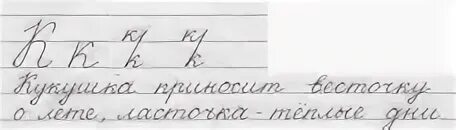 К к к/к к/к
Кукушка приносит весточку
о лете, ласточка - тёплые дни